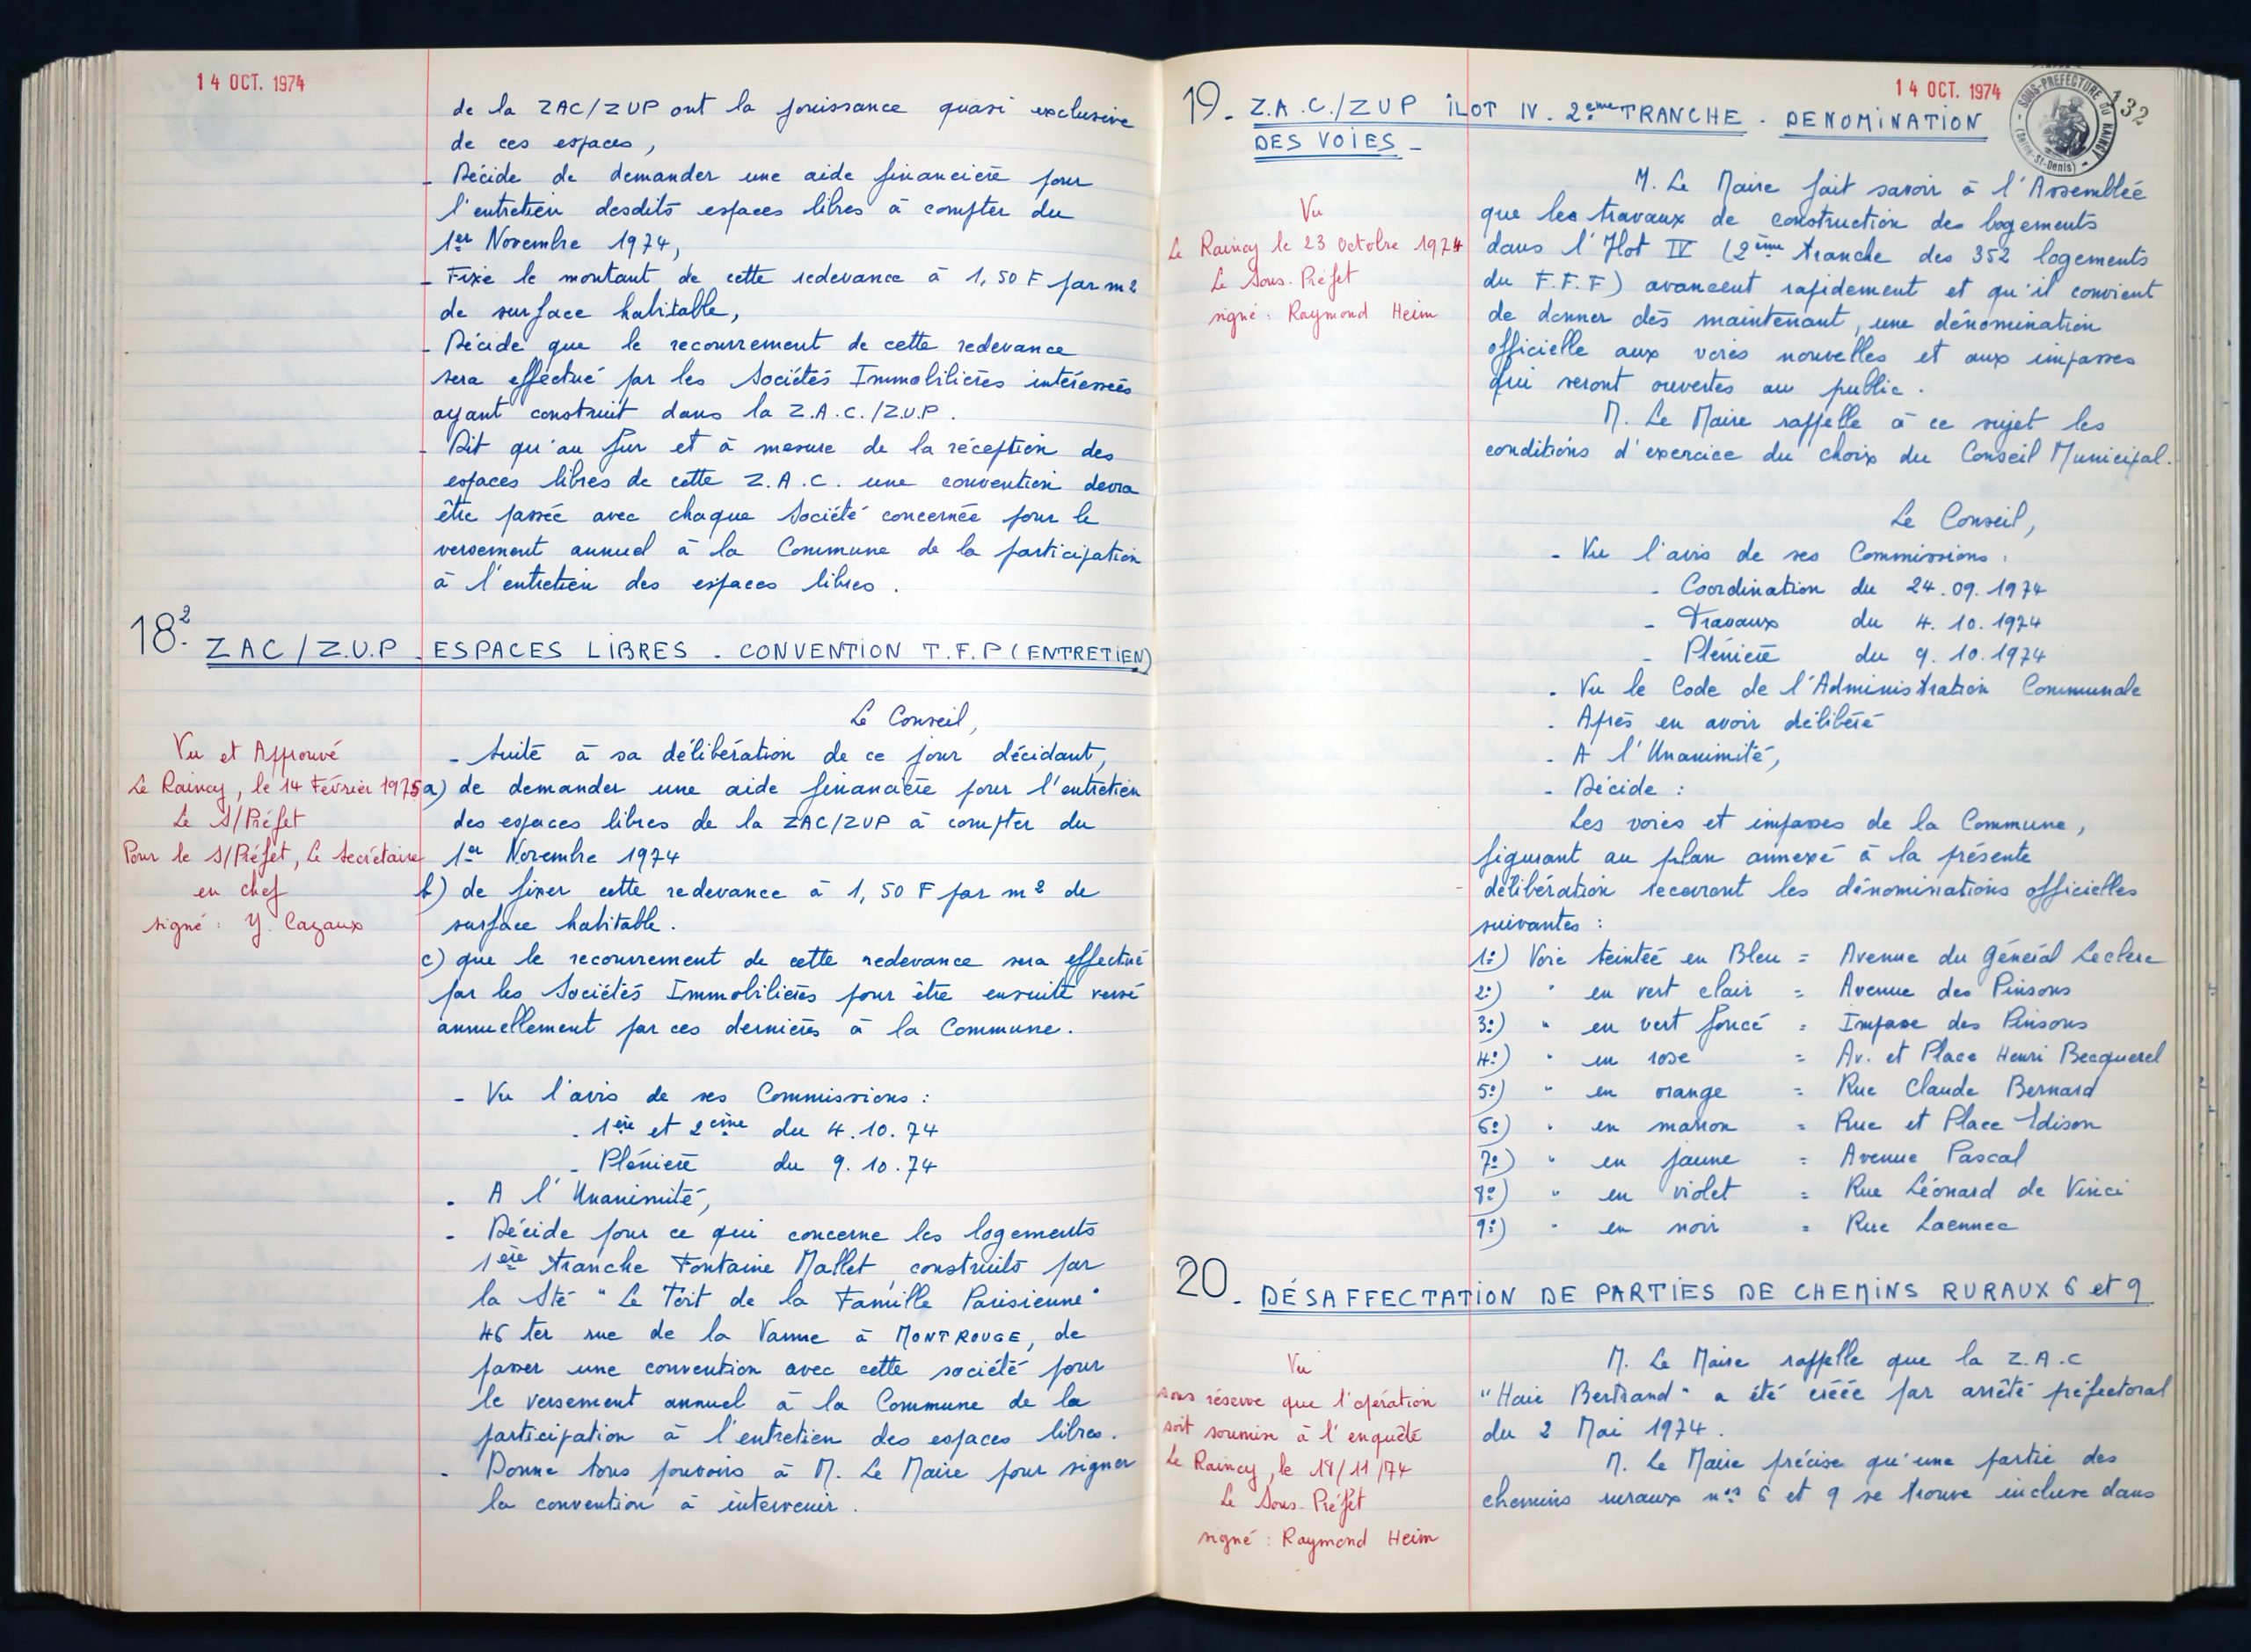 14 OCT. 1974
de la ZAC/ZUP ont la jouissance quasi exclusive
de ces espaces,
- Décide de demander une aide financière pour
l'entretien desdits espaces libres à compter du
1er Novembre 1974,
- Fixe le montant de cette redevance à 1,50 F par m2
de surface habitable,
- Décide que le recouvrement de cette redevance
sera effectué par les Sociétés Immobilières intéressées
ayant construit dans la Z.A.C./Z.U.P.
- Dit qu'au fur et à mesure de la réception des
espaces libres de cette Z.A.C. une convention devra
être passée avec chaque Société concernée pour le
versement annuel à la Commune de la participation
à l'entretien des espaces libres.
18.2 ZAC/Z.U.P. ESPACES LIBRES. CONVENTION T.F.P (ENTRETIEN)
Vu et Approuvé
Le Raincy, le 14 Février 1975
Le S/Préfet
Pour le S/Préfet, Le Secrétaire
en chef
signé : Y. Cazaux
Le Conseil,
- Suite à sa délibération de ce jour décidant,
a) de demander une aide financière pour l'entretien
des espaces libres de la ZAC/ZUP à compter du
1er Novembre 1974
b) de fixer cette redevance à 1,50 F par m2 de
surface habitable.
c) que le recouvrement de cette redevance sera effectué
par les Sociétés Immobilières pour être ensuite versé
annuellement par ces dernières à la Commune.
- Vu l'avis de ses Commissions :
. 1ère et 2ème du 4.10.74
- Plénière du 9.10.74
- A l'Unanimité,
- Décide pour ce qui concerne les logements
1ère tranche Fontaine Mallet, construits par
la Sté "Le Toit de la Famille Parisienne"
46 ter rue de la Vanne à MONTROUGE, de
passer une convention avec cette société pour
le versement annuel à la Commune de la
participation à l'entretien des espaces libres.
- Donne tous pouvoirs à M. Le Maire pour signer
la convention à intervenir.
14 OCT. 1974
SOUS-PREFECTURE DU RAINCY
(Seine-St-Denis)
132
19. Z.A.C./ZUP ÎLOT IV. 2ème TRANCHE. DENOMINATION
DES VOIES -
Vu
Le Raincy le 23 Octobre 1974
Le Sous-Préfet
signé : Raymond Heim
M. Le Maire fait savoir à l'Assemblée
que les travaux de construction des logements
dans l'Ilot IV (2ème tranche des 352 logements
du F.F.F) avancent rapidement et qu'il convient
de donner dès maintenant, une dénomination
officielle aux voies nouvelles et aux impasses
qui seront ouvertes au public.
M. Le Maire rappelle à ce sujet les
conditions d'exercice du choix du Conseil Municipal.
Le Conseil,
- Vu l'avis de ses Commissions :
- Coordination du 24.09.1974
- Travaux du 4.10.1974
- Plénière du 9.10.1974
- Vu le Code de l'Administration Communale
- Après en avoir délibéré
- A l'Unanimité,
- Décide :
Les voies et impasses de la Commune,
figurant au plan annexé à la présente
délibération recevront les dénominations officielles
suivantes :
1°) Voie teintée en Bleu = Avenue du Général Leclerc
2°) " en vert clair = Avenue des Pinsons
3°) " en vert foncé = Impasse des Pinsons
4°) " en rose = Av. et Place Henri Becquerel
5°) " en orange = Rue Claude Bernard
6°) " en marron = Rue et Place Edison
7°) " en jaune = Avenue Pascal
8°) " en violet = Rue Léonard de Vinci
9°) " en noir = Rue Laennec
20. DÉSAFFECTATION DE PARTIES DE CHEMINS RURAUX 6 et 9
Vu
sous réserve que l'opération
soit soumise à l'enquête
Le Raincy, le 18/11/74
Le Sous-Préfet
signé : Raymond Heim
M. Le Maire rappelle que la Z.A.C
"Haie Bertrand" a été créée par arrêté préfectoral
du 2 Mai 1974.
M. Le Maire précise qu'une partie des
chemins ruraux nos 6 et 9 se trouve incluse dans